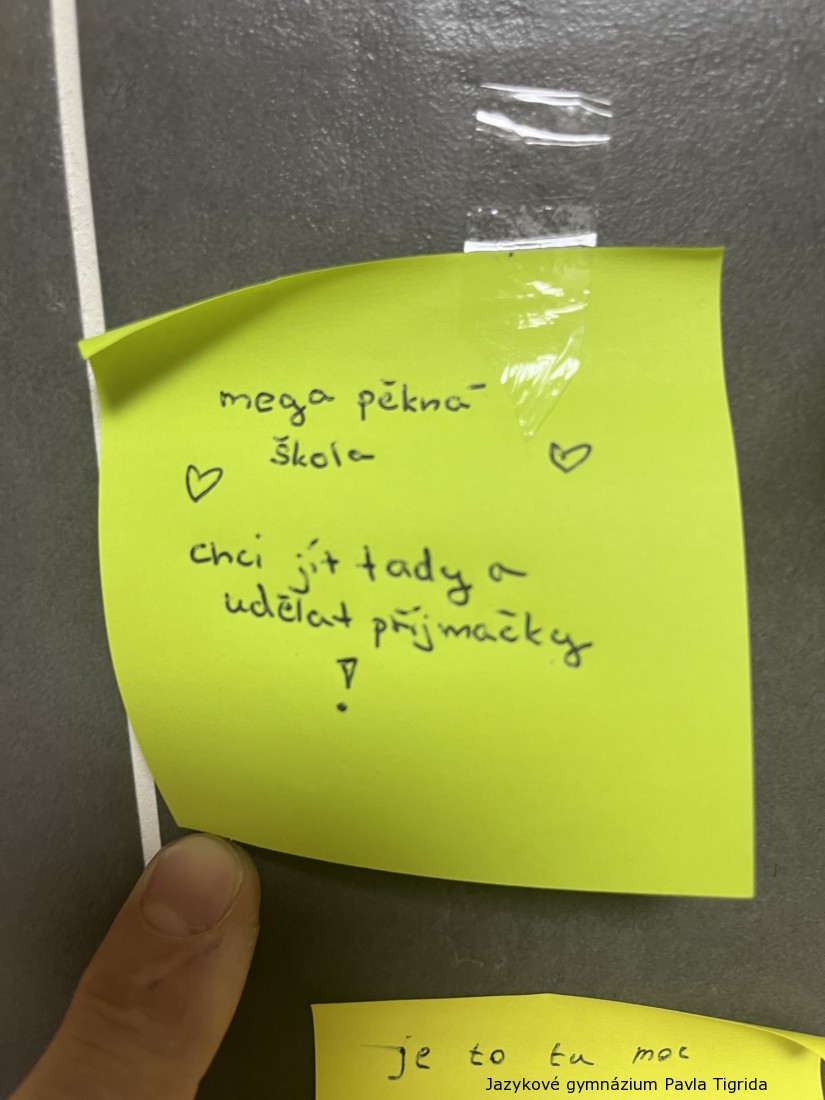 mega pěkná
škola
chci jít tady a
udělat příjmačky
!
je to tu moc
Jazykové gymnázium Pavla Tigrida